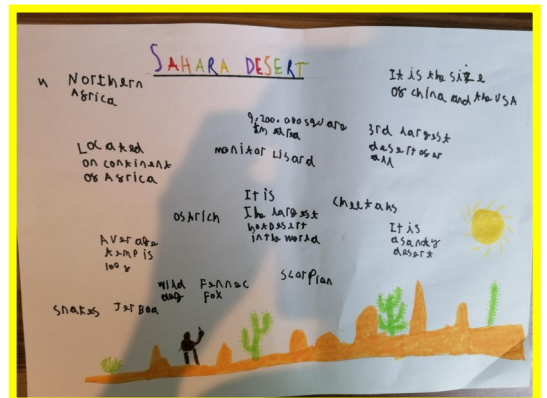 SAHARA DESERT
N Northern
Africa
It is the size
of china and the USA
9,200,000 square
km area
3rd largest
desert over
all
Located
on continent
of Africa
monitor Lisard
It is
The largest
hot Desert
in the world
Cheetahs
Ostrich
It is
a sandy
desert
Average
temp is
100
wild
dog
Fennec
fox
Scorpian
snakes
Jerboa